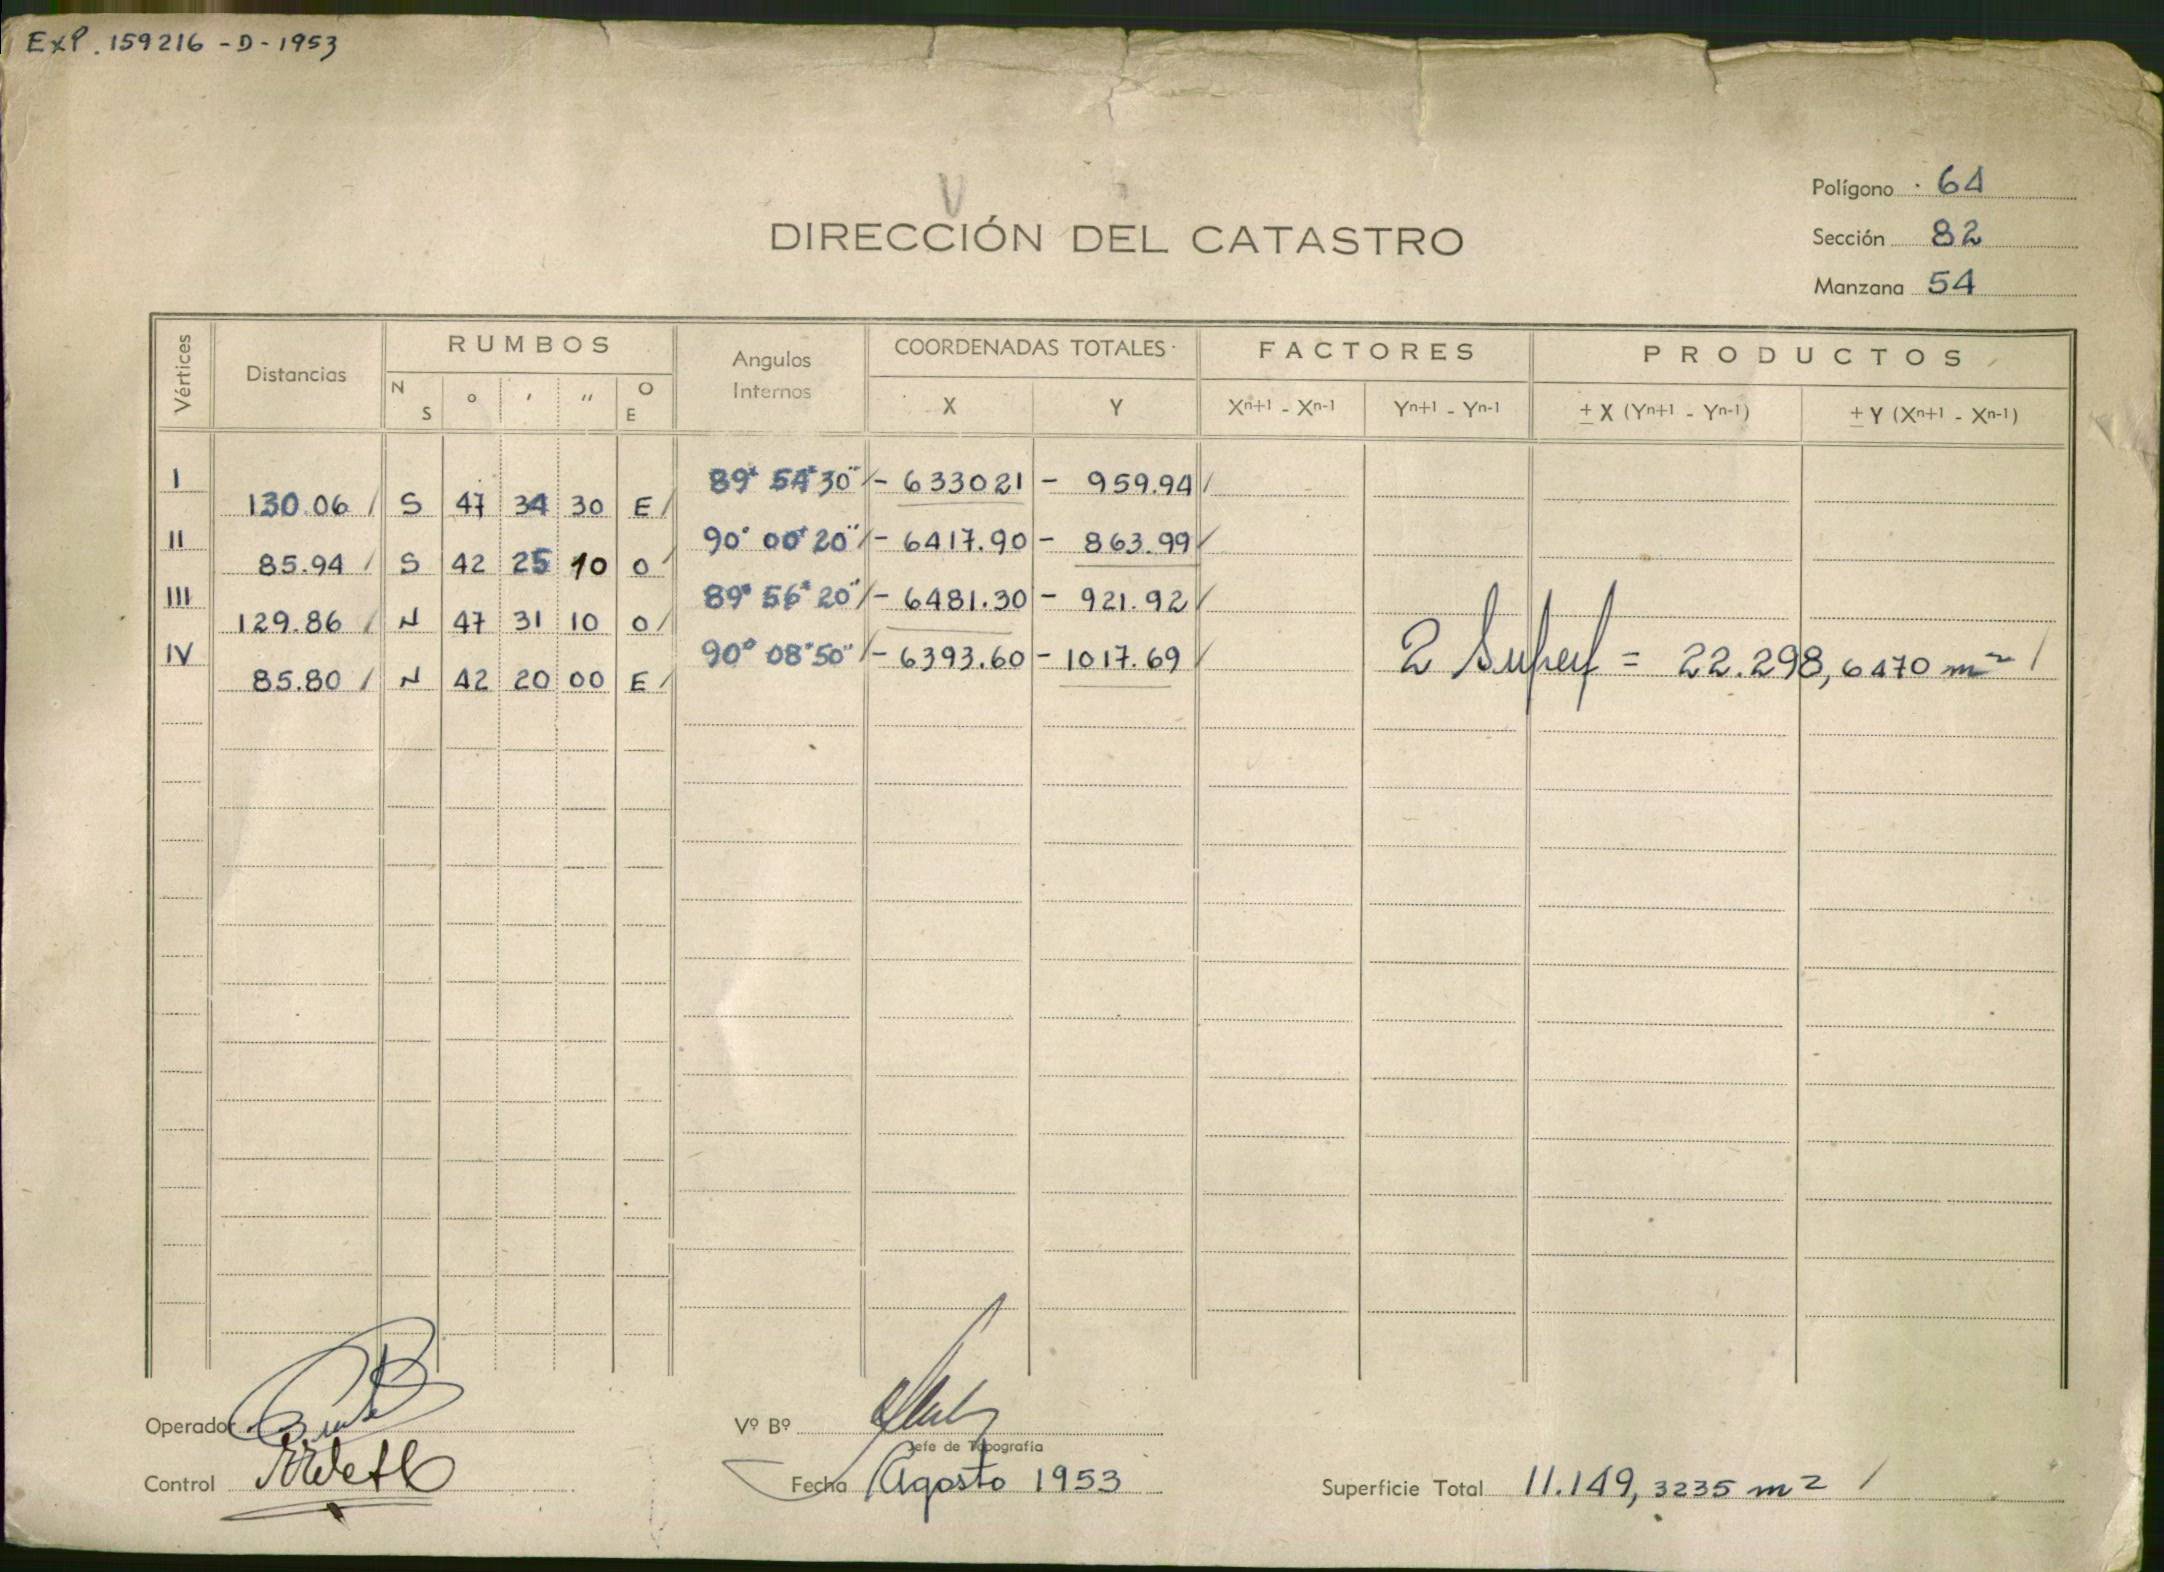 EXP. 159216 - D - 1953
Polígono 64
DIRECCIÓN DEL CATASTRO
Sección 82
Manzana 54
Vértices Distancias RUMBOS Angulos Internos COORDENADAS TOTALES FACTORES PRODUCTOS
N S ° ' " O E X Y Xn+1 - Xn-1 Yn+1 - Yn-1 ± X (Yn+1 - Yn-1) ± Y (Xn+1 - Xn-1)
I 89° 54' 30" / - 633021 - 959.94 /
130.06 / S 47 34 30 E /
II 90° 00' 20" / - 6417.90 - 863.99 /
85.94 / S 42 25 10 O /
III 89° 56' 20" / - 6481.30 - 921.92 /
129.86 / N 47 31 10 O /
IV 90° 08' 50" / - 6393.60 - 1017.69 / 2 Superf = 22.298,6470 m2 /
85.80 / N 42 20 00 E /
Operador
Vº Bº
Jefe de Topografía
Control
Fecha Agosto 1953
Superficie Total 11.149,3235 m2 /